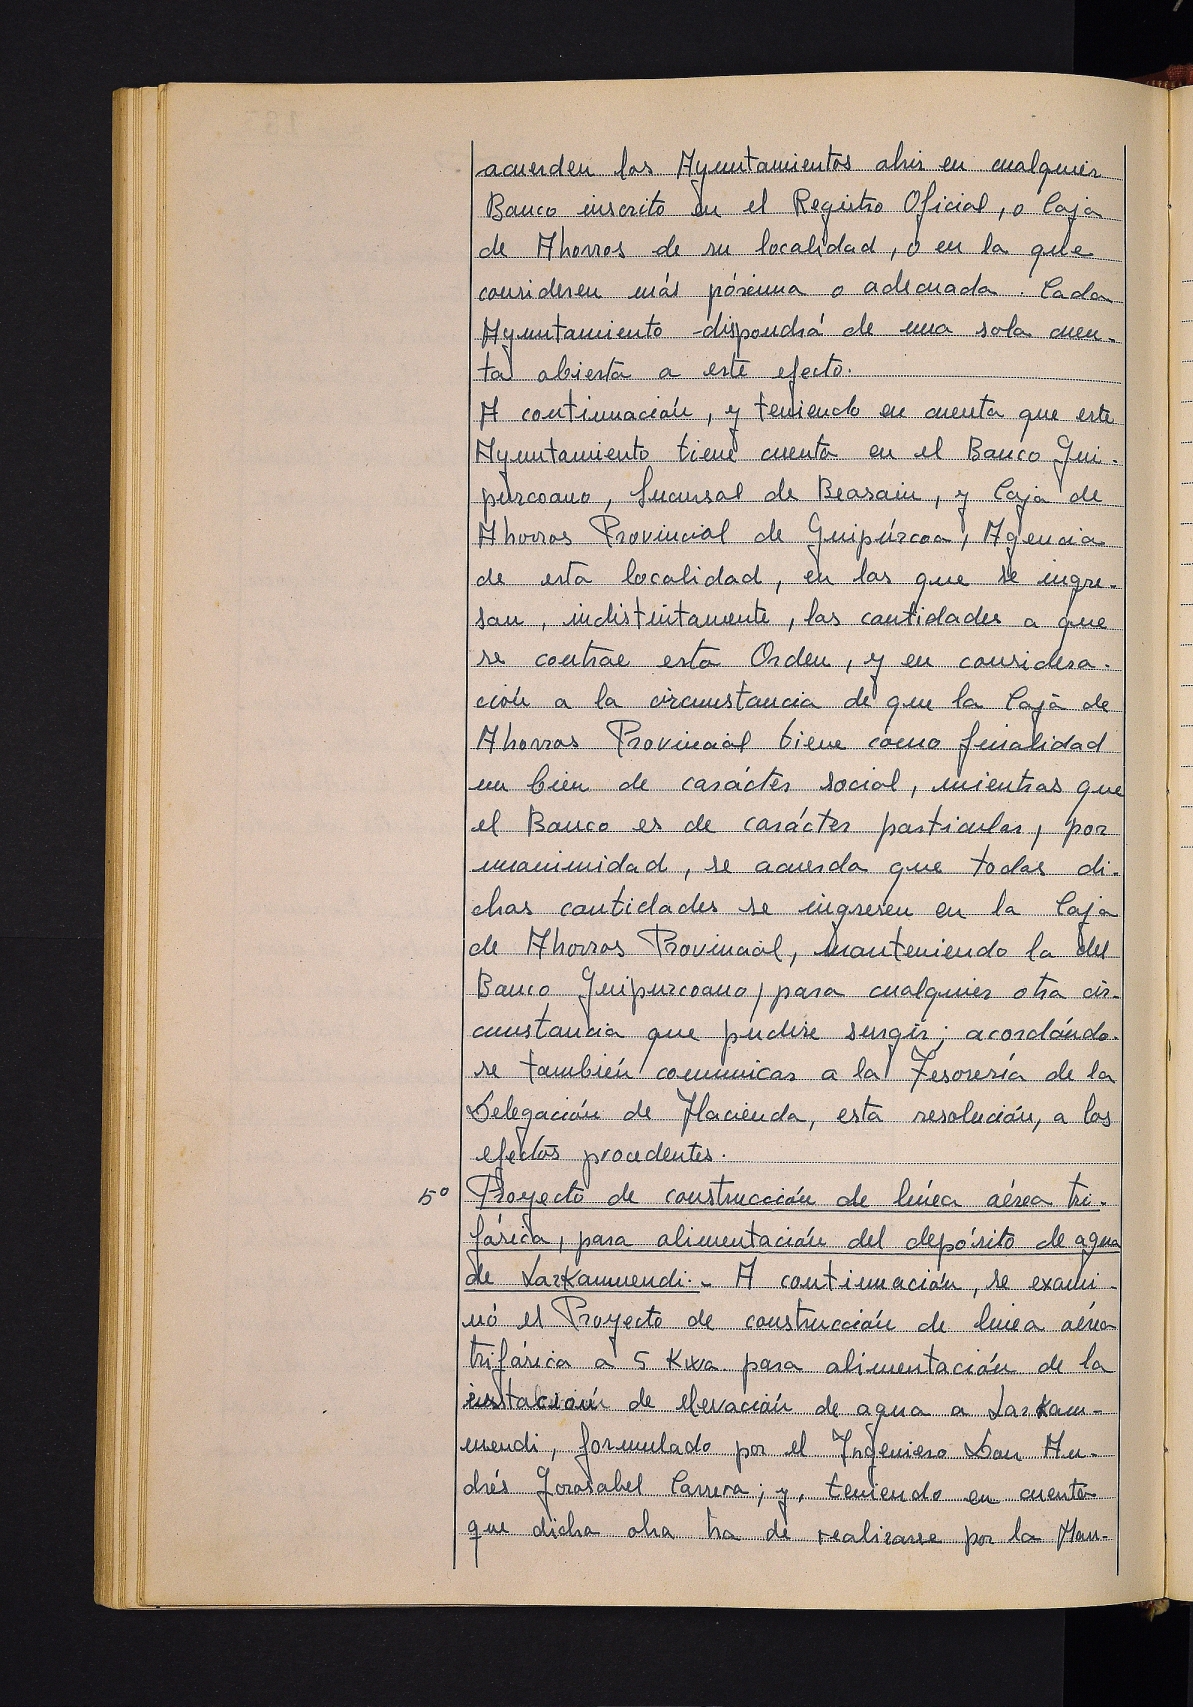 acuerden los Ayuntamientos abrir en cualquier
Banco inscrito en el Registro Oficial, o Caja
de Ahorros de su localidad, o en la que
consideren más póxima o adecuada. Cada
Ayuntamiento dispondrá de una sola cuen-
ta abierta a este efecto.
A continuación, y teniendo en cuenta que este
Ayuntamiento tiene cuenta en el Banco Gui-
puzcoano, Sucursal de Beasain, y Caja de
Ahorros Provincial de Guipúzcoa, Agencia
de esta localidad, en las que se ingre-
san, indistintamente, las cantidades a que
se contrae esta Orden, y en considera-
ción a la circunstancia de que la Caja de
Ahorros Provincial tiene como finalidad
un bien de carácter social, mientras que
el Banco es de carácter particular, por
unanimidad, se acuerda que todas di-
chas cantidades se ingresen en la Caja
de Ahorros Provincial, manteniendo la del
Banco Guipuzcoano, para cualquier otra cir-
cunstancia que pudise surgir; acordándo-
se también comunicar a la Tesorería de la
Delegación de Hacienda, esta resolución, a los
efectos procedentes.
5º Proyecto de construcción de línea aérea tri-
fásica, para alimentación del depósito de agua
de Lazkamuendi.- A continuación, se exami-
nó el Proyecto de construcción de línea aérea
trifásica a 5 Kwa para alimentación de la
instalación de elevación de agua a Lazkam-
uendi, formulado por el Ingeniero Don An-
drés Gorosabel Carrera; y, teniendo en cuenta
que dicha obra ha de realizarse por la Man-